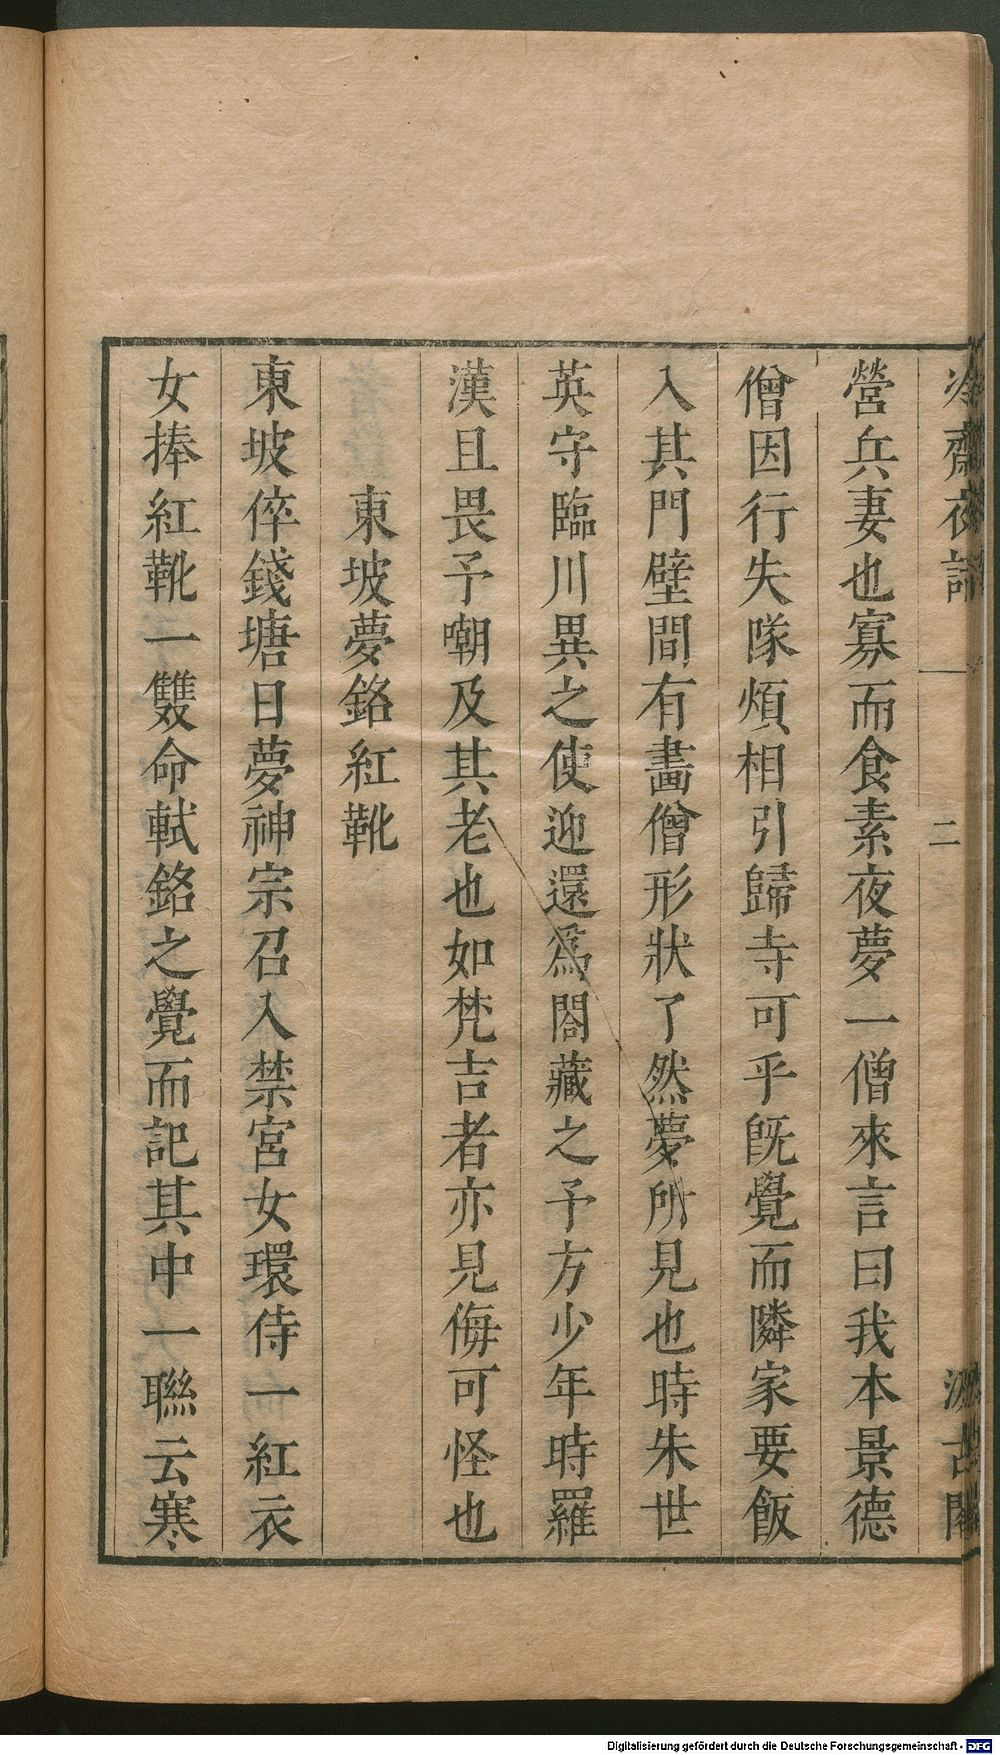 冷齋夜話 二 汲古閣
營兵妻也寡而食素夜夢一僧來言曰我本景德
僧因行失隊煩相引歸寺可乎旣覺而隣家要飯
入其門壁間有畫僧形狀了然夢所見也時朱世
英守臨川異之使迎還爲閤藏之予方少年時羅
漢且畏予嘲及其老也如梵吉者亦見侮可怪也
東坡夢銘紅靴
東坡倅錢塘日夢神宗召入禁宮女環侍一紅衣
女捧紅靴一雙命軾銘之覺而記其中一聯云寒
Digitalisierung gefördert durch die Deutsche Forschungsgemeinschaft - DFG